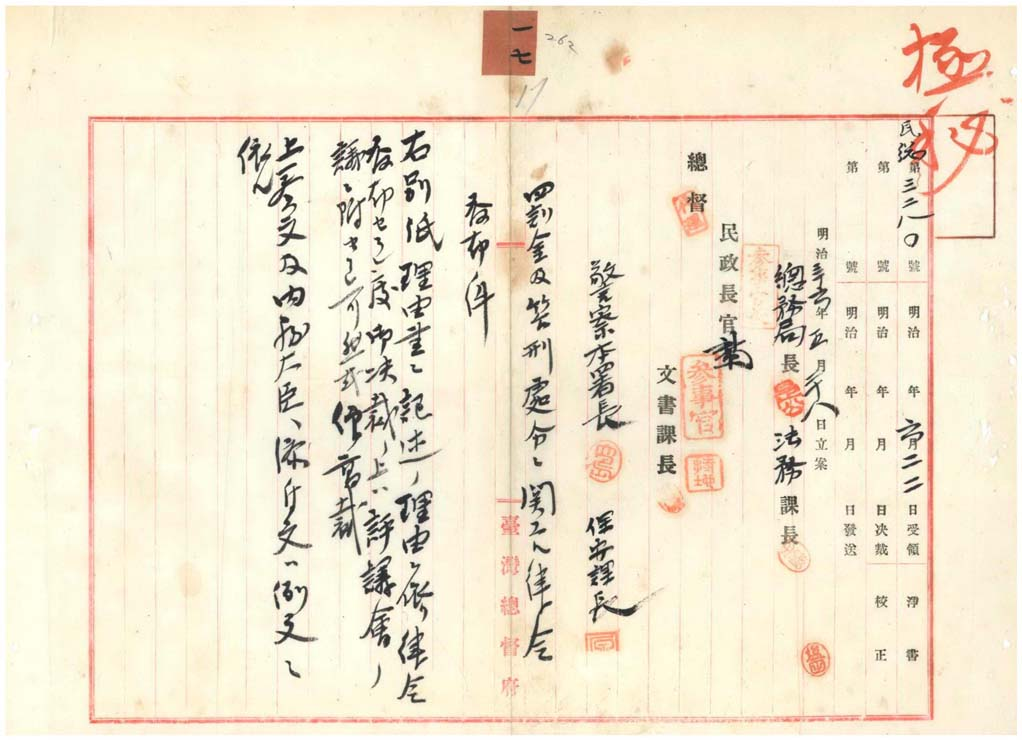 極秘
一七
262
17
民總第三二八〇號 明治 年 六月二二日受領 淨書
第 號 明治 年 月 日決裁 校正
第 號 明治 年 月 日發送
明治三六年五月 八日立案
總務局長 法務課長
總督
民政長官
參事官
文書課長
警察本署長 保安課長
罰金及笞刑處分ニ関スル律令
發布ノ件
右別紙理由書ニ記述ノ理由ニ依リ律令
發布セラレ度御決裁ノ上ハ評議會ノ
議ニ附セラレ可然哉仰高裁
上奏文及内務大臣ヘ添付文ハ例文ニ
依ル
臺灣總督府